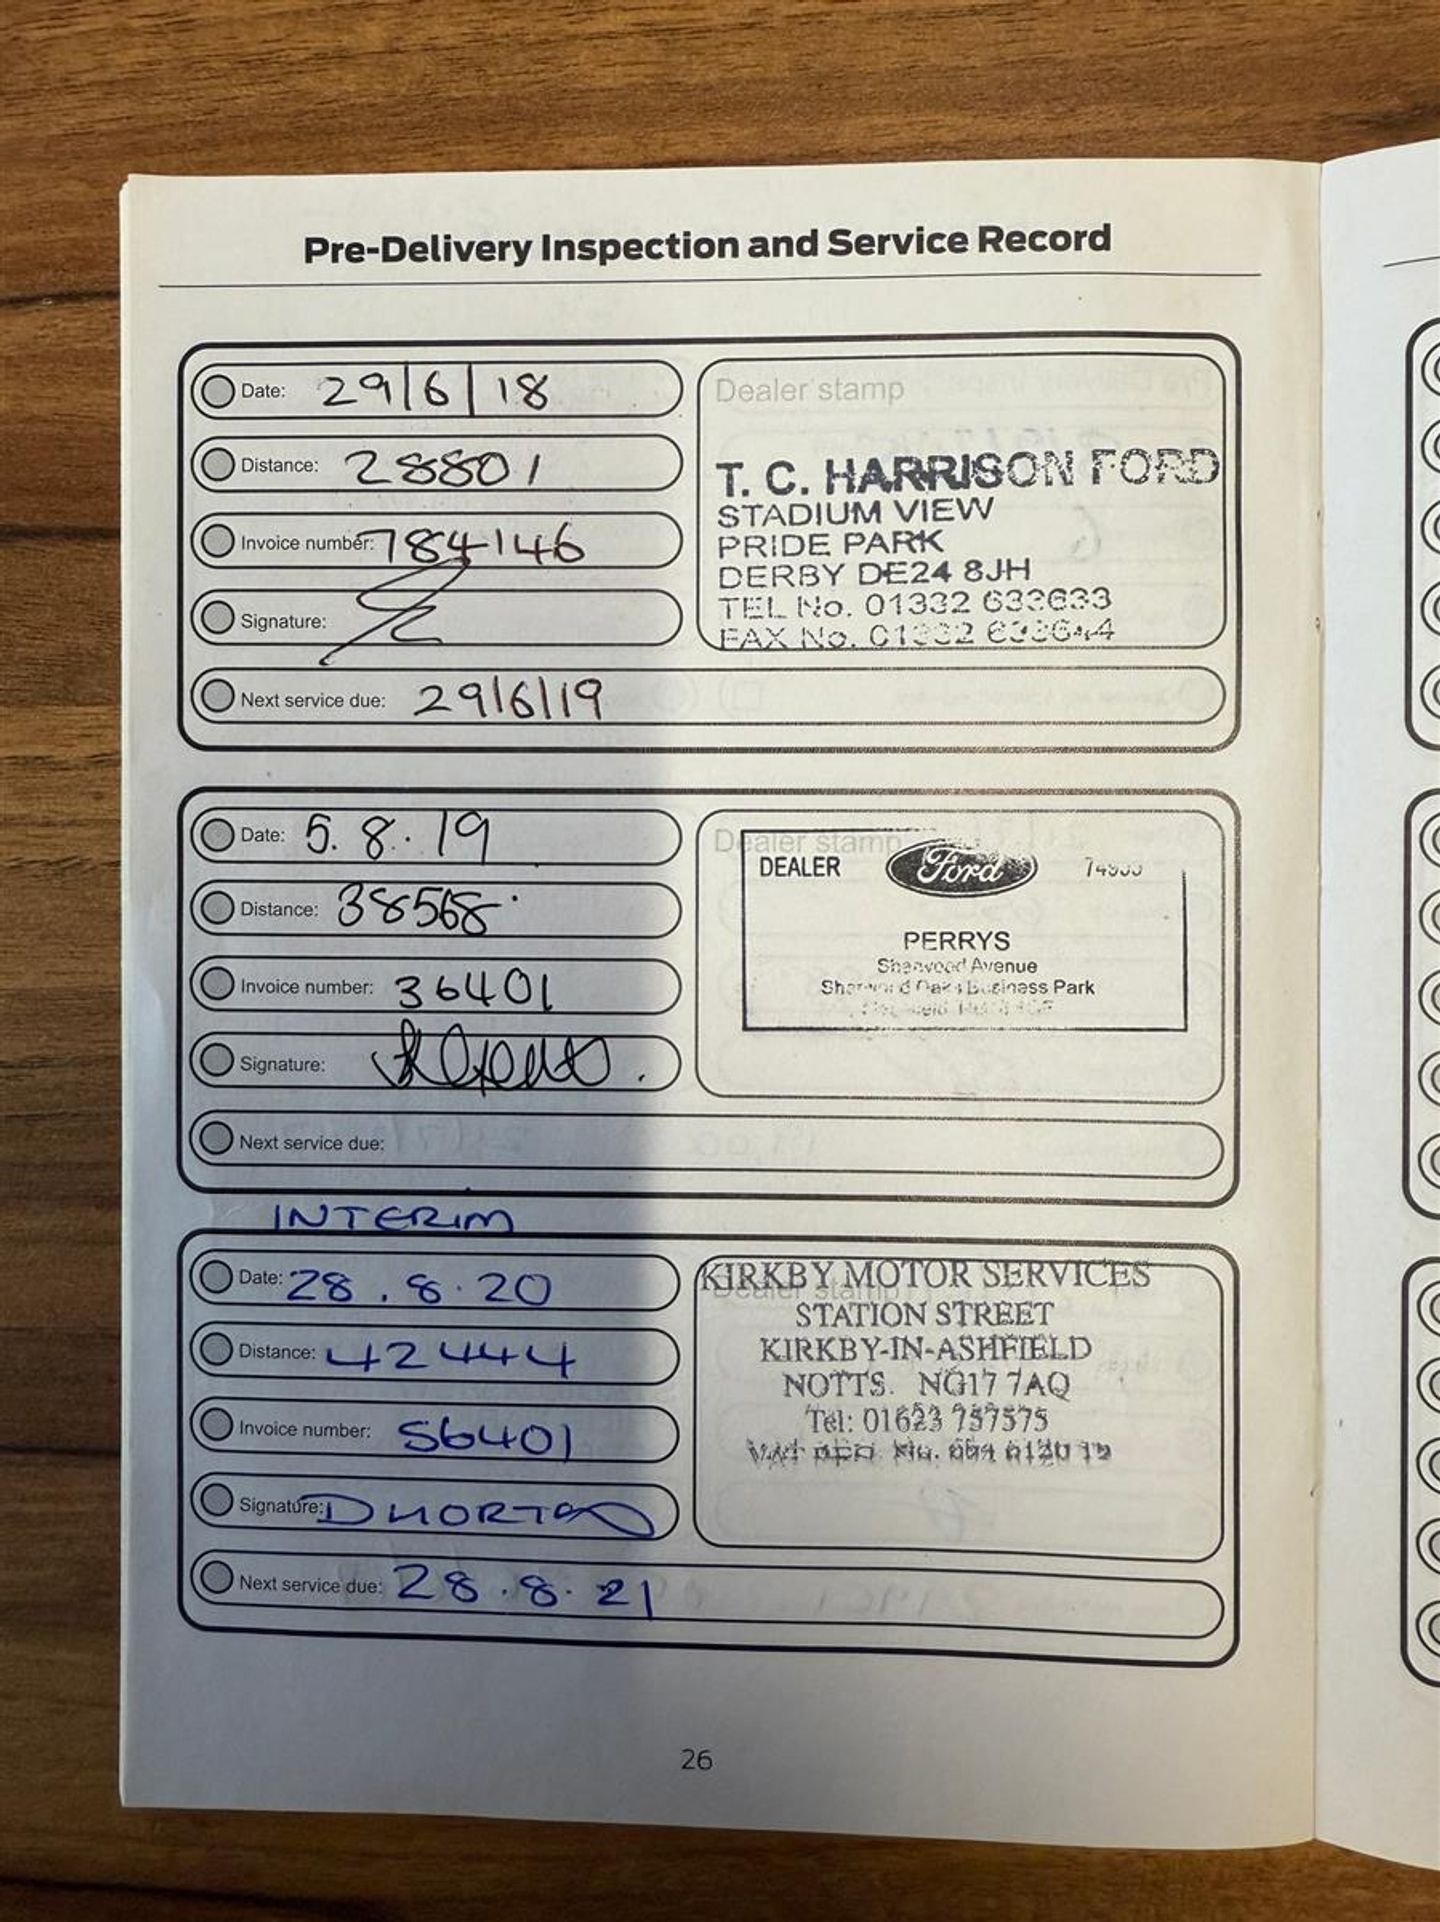 Pre-Delivery Inspection and Service Record
Date: 29/6/18
Distance: 28801
Invoice number: 784146
Signature:
Next service due: 29/6/19
Dealer stamp
T. C. HARRISON FORD
STADIUM VIEW
PRIDE PARK
DERBY DE24 8JH
TEL No. 01332 633633
FAX No.
Date: 5.8.19
Distance: 38568
Invoice number: 36401
Signature:
Next service due:
Dealer stamp
DEALER Ford
PERRYS
Sherwood Avenue
Sherwood Oaks Business Park
INTERIM
Date: 28.8.20
Distance: 42444
Invoice number: 56401
Signature: D HORTON
Next service due: 28.8.21
Dealer stamp
KIRKBY MOTOR SERVICES
STATION STREET
KIRKBY-IN-ASHFIELD
NOTTS. NG17 7AQ
Tel: 01623 757575
26